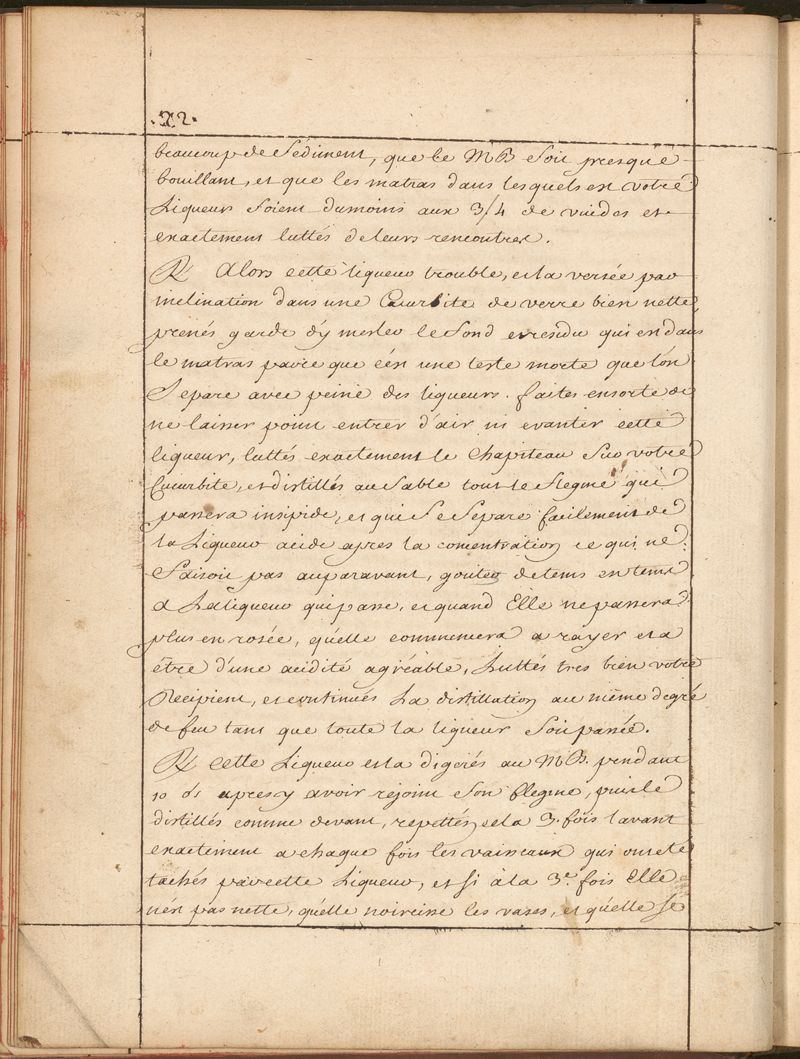 .22.
beaucoup de Sediment, que le MB Soit presque
bouillant, et que les matras dans lesquels est votre
Liqueur Soient dumoins aux 3/4 de vuides et
exactement luttés de leurs rencontres.
R Alors cette liqueur trouble, et la versée par
inclination dans une Cucurbite de verre bien nette
prenés garde d'y mesler le fond qui est dans
le matras parce que c'est une teste morte que l'on
Separe avec peine des liqueurs. faites ensorte de
ne laisser point entrer d'air ni evanter cette
liqueur, luttés exactement le Chapiteau Sur votre
Cucurbite, et distillés au Sable tout le flegme qui
passera insipide, et qui Se Separe facilement de
la Liqueur acide apres la concentration ce qui ne
faisoit pas auparavant, goutéz de tems en tems
a La liqueur qui passe, et quand Elle ne passera
plus en rosée, qu'elle commencera a rayer et a
être d'une acidité agréable, Luttés tres bien votre
Recipient, et continués La distillation au même degré
de feu tant que toute la liqueur Soit passée.
R cette Liqueur et la digerés au MB. pendant
10 apres y avoir rejoint Son flegme, puis le
distillés comme devant, repettéz cela 3. fois lavant
exactement a chaque fois les vaisseaux qui ont eté
tachés par cette Liqueur, et Si à la 3.e fois Elle
n'est pas nette, qu'elle noircisse les vases, et qu'elle Se